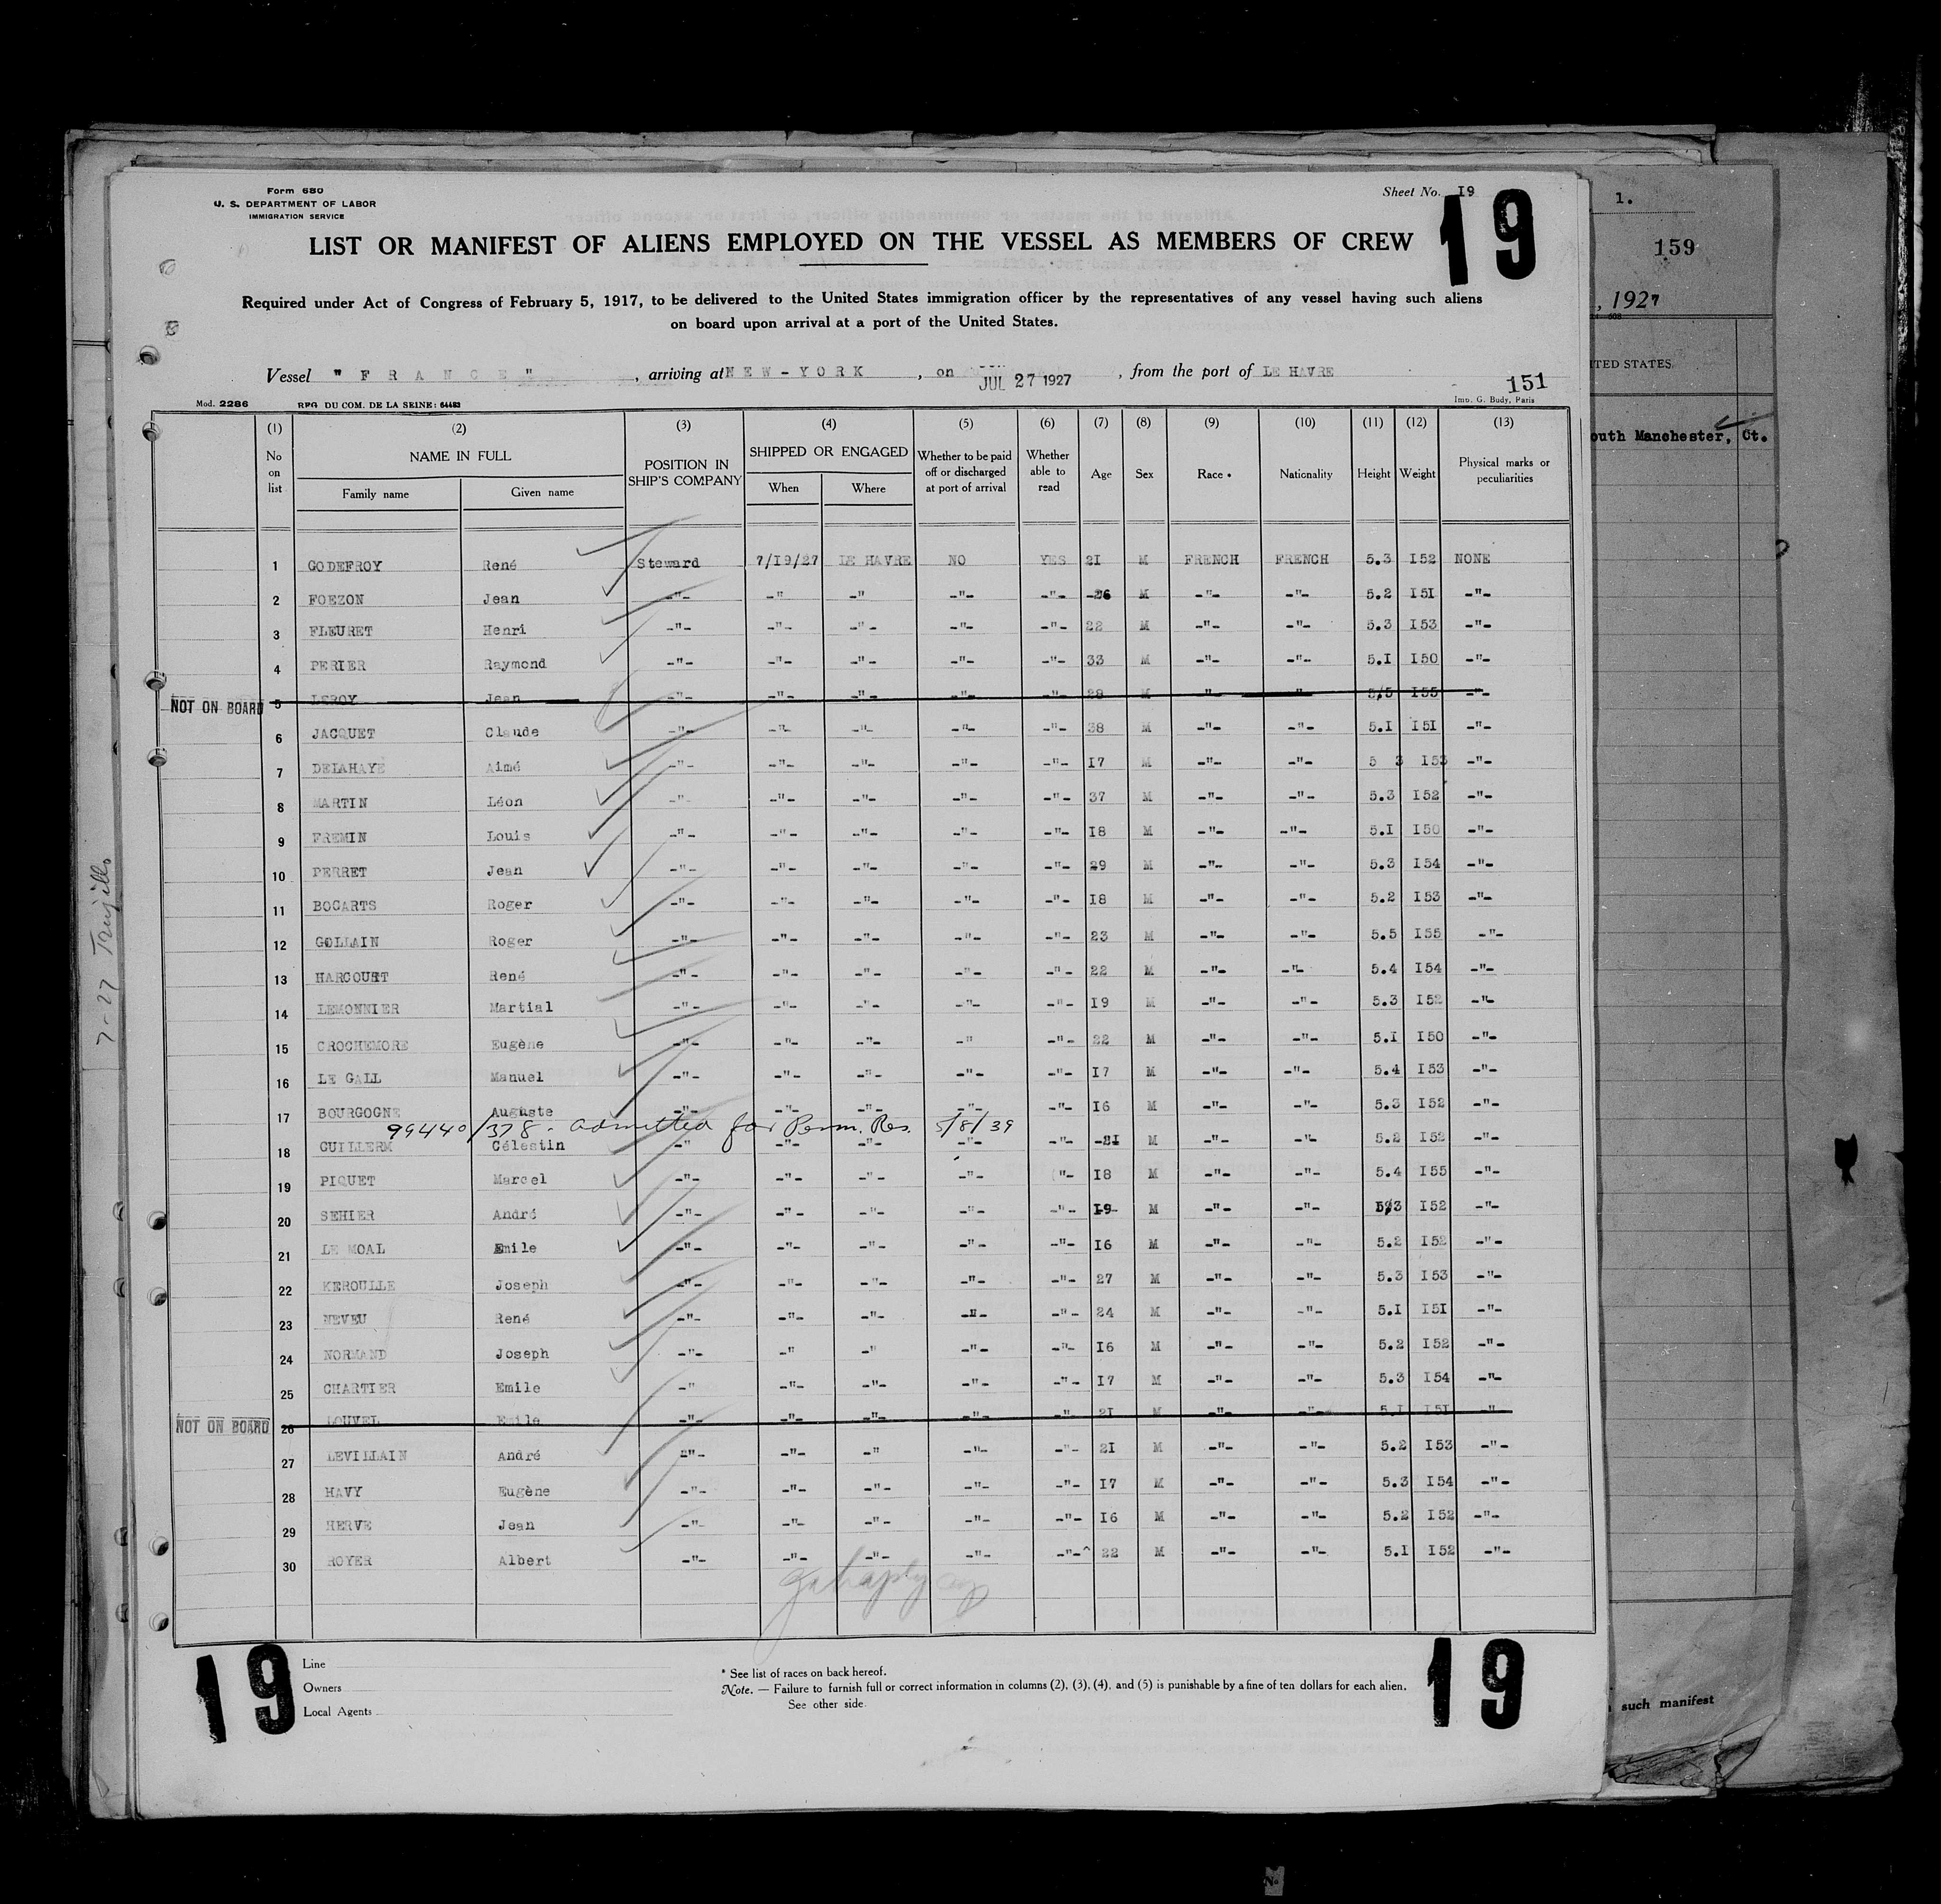 Form 680
U. S. DEPARTMENT OF LABOR
IMMIGRATION SERVICE
Sheet No. I9
19
LIST OR MANIFEST OF ALIENS EMPLOYED ON THE VESSEL AS MEMBERS OF CREW
Required under Act of Congress of February 5, 1917, to be delivered to the United States immigration officer by the representatives of any vessel having such aliens
on board upon arrival at a port of the United States.
Vessel " F R A N C E " , arriving at N E W - Y O R K , on JUL 27 1927 , from the port of LE HAVRE
151
Mod. 2286 RPG DU COM. DE LA SEINE: 64483 Imp. G. Budy, Paris
(1) (2) (3) (4) (5) (6) (7) (8) (9) (10) (11) (12) (13)
No on list NAME IN FULL Family name Given name POSITION IN SHIP'S COMPANY SHIPPED OR ENGAGED When Where Whether to be paid off or discharged at port of arrival Whether able to read Age Sex Race * Nationality Height Weight Physical marks or peculiarities
1 GODEFROY René Steward 7/I9/27 LE HAVRE NO YES 2I M FRENCH FRENCH 5.3 I52 NONE
2 FOEZON Jean -"- -" -"- -"- -"- -26 M -"- -"- 5.2 I5I -"-
3 FLEURET Henri -"- -"- -"- -"- -"- 22 M -"- -"- 5.3 I53 -"-
4 PERIER Raymond -"- -"- -"- -"- -"- 33 M -"- -"- 5.I I50 -"-
NOT ON BOARD 5 LEROY Jean -"- -"- -"- -"- -"- 28 M -"- " 5/5 I55 -"-
6 JACQUET Claude -"- -"- -"- -"- -"- 38 M -"- -"- 5.I I5I -"-
7 DELAHAYE Aimé -"- -"- -"- -"- -"- I7 M -"- -"- 5 3 I53 -"-
8 MARTIN Léon -"- -"- -"- -"- -"- 37 M -"- -"- 5.3 I52 -"-
9 FREMIN Louis -"- -"- -"- -"- -"- I8 M -"- -"- 5.I I50 -"-
10 PERRET Jean -"- -"- -"- -"- -"- 29 M -"- -"- 5.3 I54 -"-
11 BOCARTS Roger -"- -"- -"- -"- -"- I8 M -"- -"- 5.2 I53 -"-
12 GOLLAIN Roger -"- -"- -"- -"- -"- 23 M -"- -"- 5.5 I55 -"-
13 HARCOURT René -"- -"- -"- -"- -"- 22 M -"- -"- 5.4 I54 -"-
14 LEMONNIER Martial -"- -"- -"- -"- -"- I9 M -"- -"- 5.3 I52 -"-
15 CROCHEMORE Eugène -"- -"- -"- -" -"- 22 M -"- -"- 5.I I50 -"-
16 LE GALL Manuel -"- -"- -"- -"- -"- I7 M -"- -"- 5.4 I53 -"-
17 BOURGOGNE Auguste -"- -"- -"- -"- -"- I6 M -"- -"- 5.3 I52 -"-
99440/378 - admitted for Perm. Res. 5/8/39
18 GUILLERM Célestin -" -"- -"- -"- -"- -2I M -"- -"- 5.2 I52 -"-
19 PIQUET Marcel -"- -"- -"- -"- "- I8 M -"- -"- 5.4 I55 -"-
20 SEHIER André -"- -"- -"- -"- -"- I9- M -"- -"- 5/3 I52 -"-
21 LE MOAL Emile -"- -"- -"- -"- -"- I6 M -"- -"- 5.2 I52 -"-
22 KEROULLE Joseph -"- -"- -"- -"- -"- 27 M -"- -"- 5.3 I53 -"-
23 NEVEU René -"- -"- -"- -"- -"- 24 M -"- -"- 5.I I5I -"-
24 NORMAND Joseph -"- -" -" -"- -"- I6 M -"- -"- 5.2 I52 -"-
25 CHARTIER Emile -" -"- -"- -"- -"- I7 M -"- -"- 5.3 I54 -"-
NOT ON BOARD 26 LOUVEL Emile -"- -"- -"- -"- -"- 2I M -"- -"- 5.I I5I "
27 LEVILLAIN André -"- -"- -" -"- -"- 2I M -"- -"- 5.2 I53 -"-
28 HAVY Eugène -"- -"- -"- -"- -"- I7 M -"- -"- 5.3 I54 -"-
29 HERVE Jean -"- -"- -"- -"- -"- I6 M -"- -"- 5.2 I52 -"-
30 ROYER Albert -"- -"- -"- -"- -"- 22 M -"- -"- 5.I I52 -"-
19
Line
Owners
Local Agents
* See list of races on back hereof.
Note. — Failure to furnish full or correct information in columns (2), (3), (4), and (5) is punishable by a fine of ten dollars for each alien.
See other side.
19
7-27 Trujillo
1.
159
, 1927
ITED STATES
outh Manchester, Ct.
such manifest